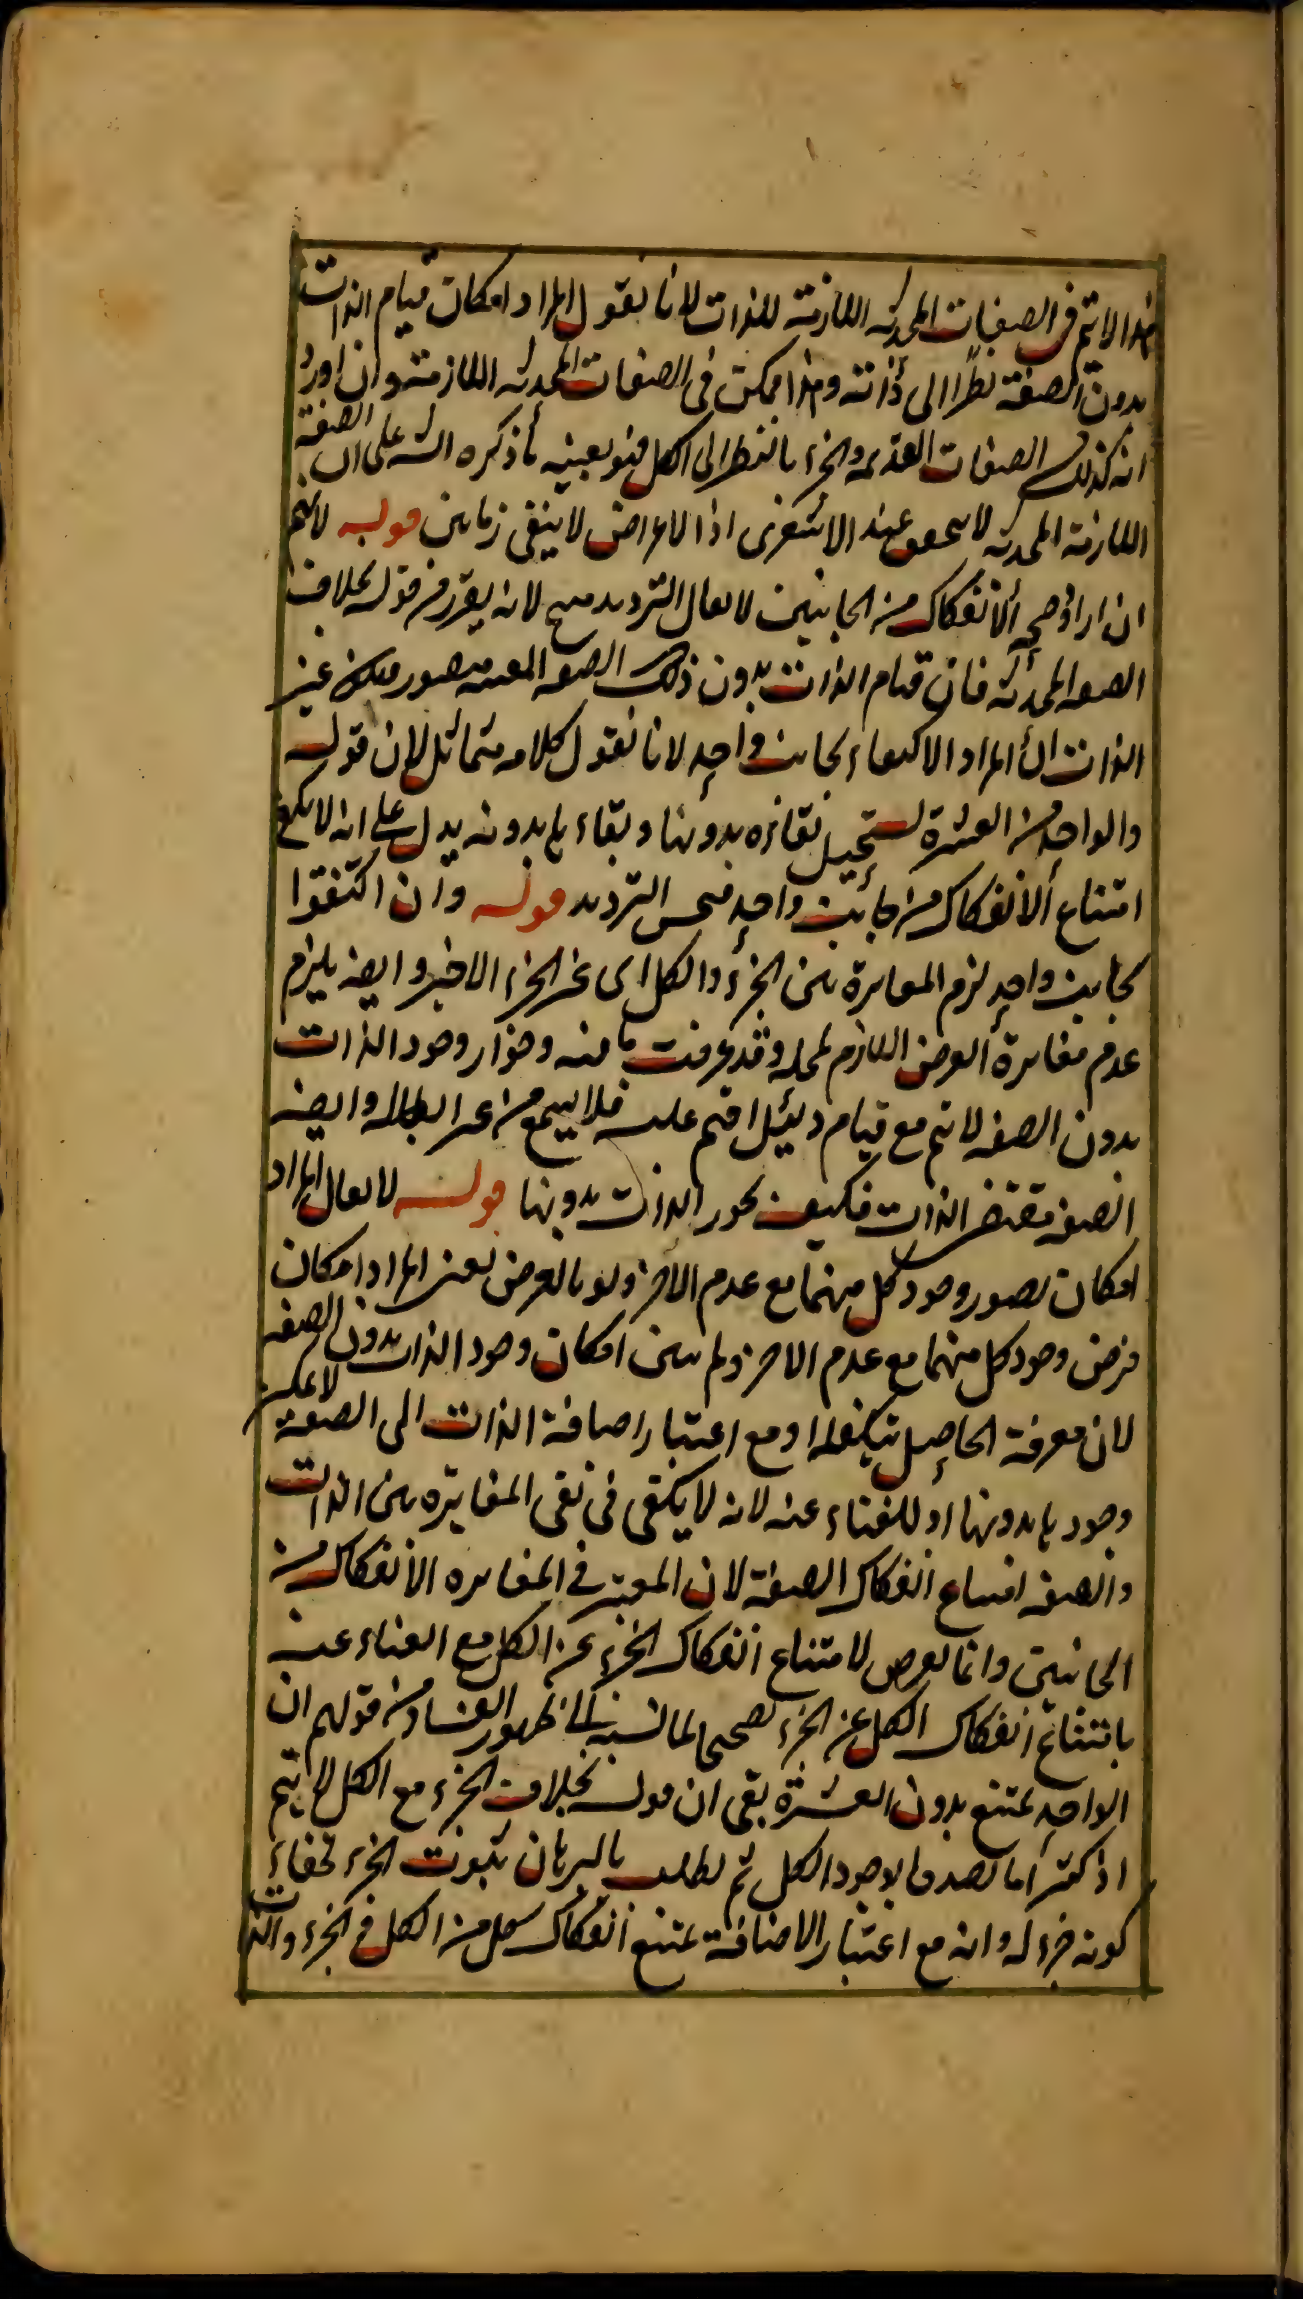 هذا لا يتم في الصفات المحدثة اللازمة للذات لانا نقول المراد امكان قيام الذات
بدون الصفة نظرا الى ذاته وهذا ممكن فى الصفات المحدثة اللازمة وان اورد
انه كذلك الصفات القديمة والجزء بالنظر الى الكل فهو بعينه ما ذكره الش على ان الصفة
اللازمة المحدثة لا يتحقق عند الاشعرى اذا الاعراض لا يبقى زمانين قوله لانهم
ان ارادوا صحة الانفكاك من الجانبين لا يقال الترديد قبيح لانه يقرر من قوله بخلاف
الصفة المحدثة فان قيام الذات بدون ذلك الصفة المعينة متصور فيكون غير
الذات ان المراد الاكتفاء بجانب واحد لانا نقول كلامه متماثل لان قوله
والواحد من العشرة يستحيل بقاؤه بدونها وبقاءها بدونه يدل على انه لا يكفى
امتناع الانفكاك من جانب واحد فحسن الترديد قوله وان اكتفوا
بجانب واحد لزم المغايرة بين الجزء والكل اى غير الجزء الاخير وايضا يلزم
عدم مغايرة العرض اللازم لمحله وقد عرفت ما فيه وجواز وجود الذات
بدون الصفة لا يتم مع قيام دليل اقيم عليه فلا يسمع من غير ابطاله وايضا
الصفة مقتضى الذات فكيف يجوز الذات بدونها قوله لا يقال المراد
امكان تصور وجود كل منهما مع عدم الاخر ولو بالفرض يعنى المراد امكان
فرض وجود كل منهما مع عدم الاخر ولم يبين امكان وجود الذات بدون الصفة
لان معرفة الحاصل بتكفله او مع اعتبار اضافة الذات الى الصفة لا يمكن
وجودها بدونها او للغناء عنه لانه لا يكفى فى نفى المغايرة بين الذات
والصفة امتناع انفكاك الصفة لان المعتبر في المغايرة الانفكاك من
الجانبين وانما تعرض لامتناع انفكاك الجزء عن الكل مع الغناء عنه
بامتناع انفكاك الكل عن الجزء ظهور الفساد من قولهم ان
الواحد يمتنع بدون العشرة بقى ان قوله بخلاف الجزء مع الكل لا يتم
اذ كثيرا ما نصدق بوجود الكل ثم نطلب بالبرهان ثبوت الجزء لخفاء
كونه جزء له وانه مع اعتبار الاضافة يمتنع انفكاك كل من الكل في الجزء والذات